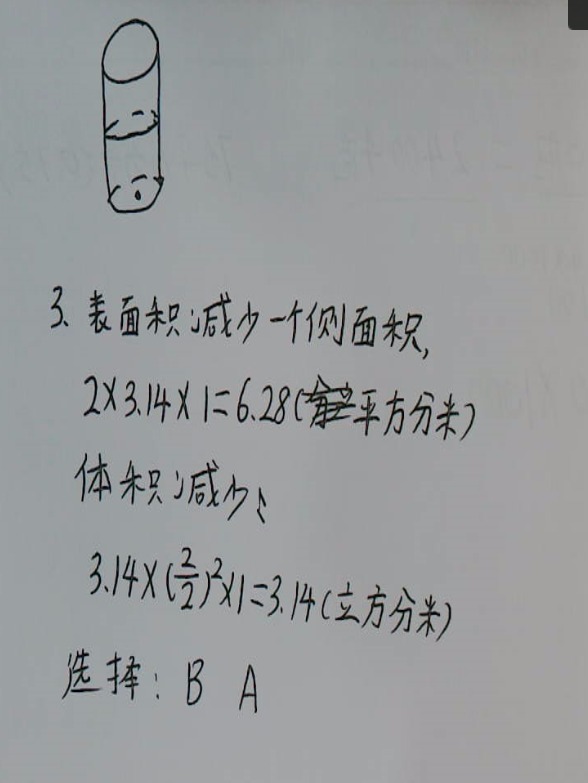 3. 表面积减少一个侧面积,
2×3.14×1=6.28(平方分米)
体积减少:
3.14×(2/2)²×1=3.14(立方分米)
选择: B A